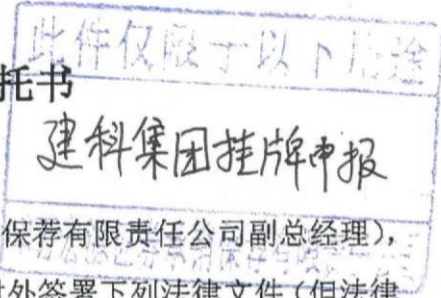 此件仅限于以下用途
托书
建科集团挂牌申报
保荐有限责任公司副总经理），
对外签署下列法律文件（但法律